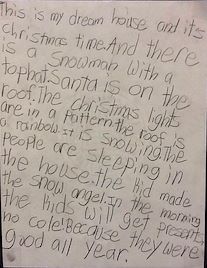 This is my dream house and its
christmas time. And there
is a snowman with a
tophat. Santa is on the
roof. The christmas lights
are in a pattern. the roof is
a rainbow. It is snowing. The
people are sleeping in
the house. the kid made
the snow angel. In the morning
the kids will get presents,
no cole! Because they were
good all year.